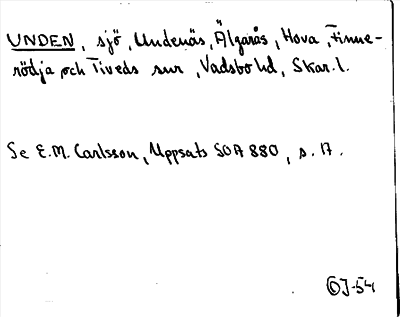 UNDEN, sjö, Undenäs, Älgarås, Hova, Finne-
rödja och Tiveds snr, Vadsbo hd, Skar. l.
Se E.M. Carlsson, Uppsats SOA 880, s. 17.
OJ-54